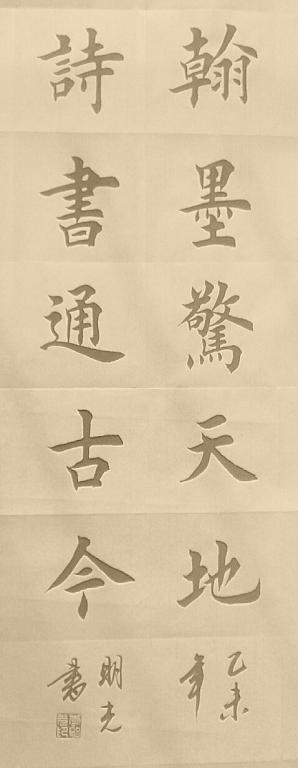 翰墨驚天地
詩書通古今
乙未
年
明光
書